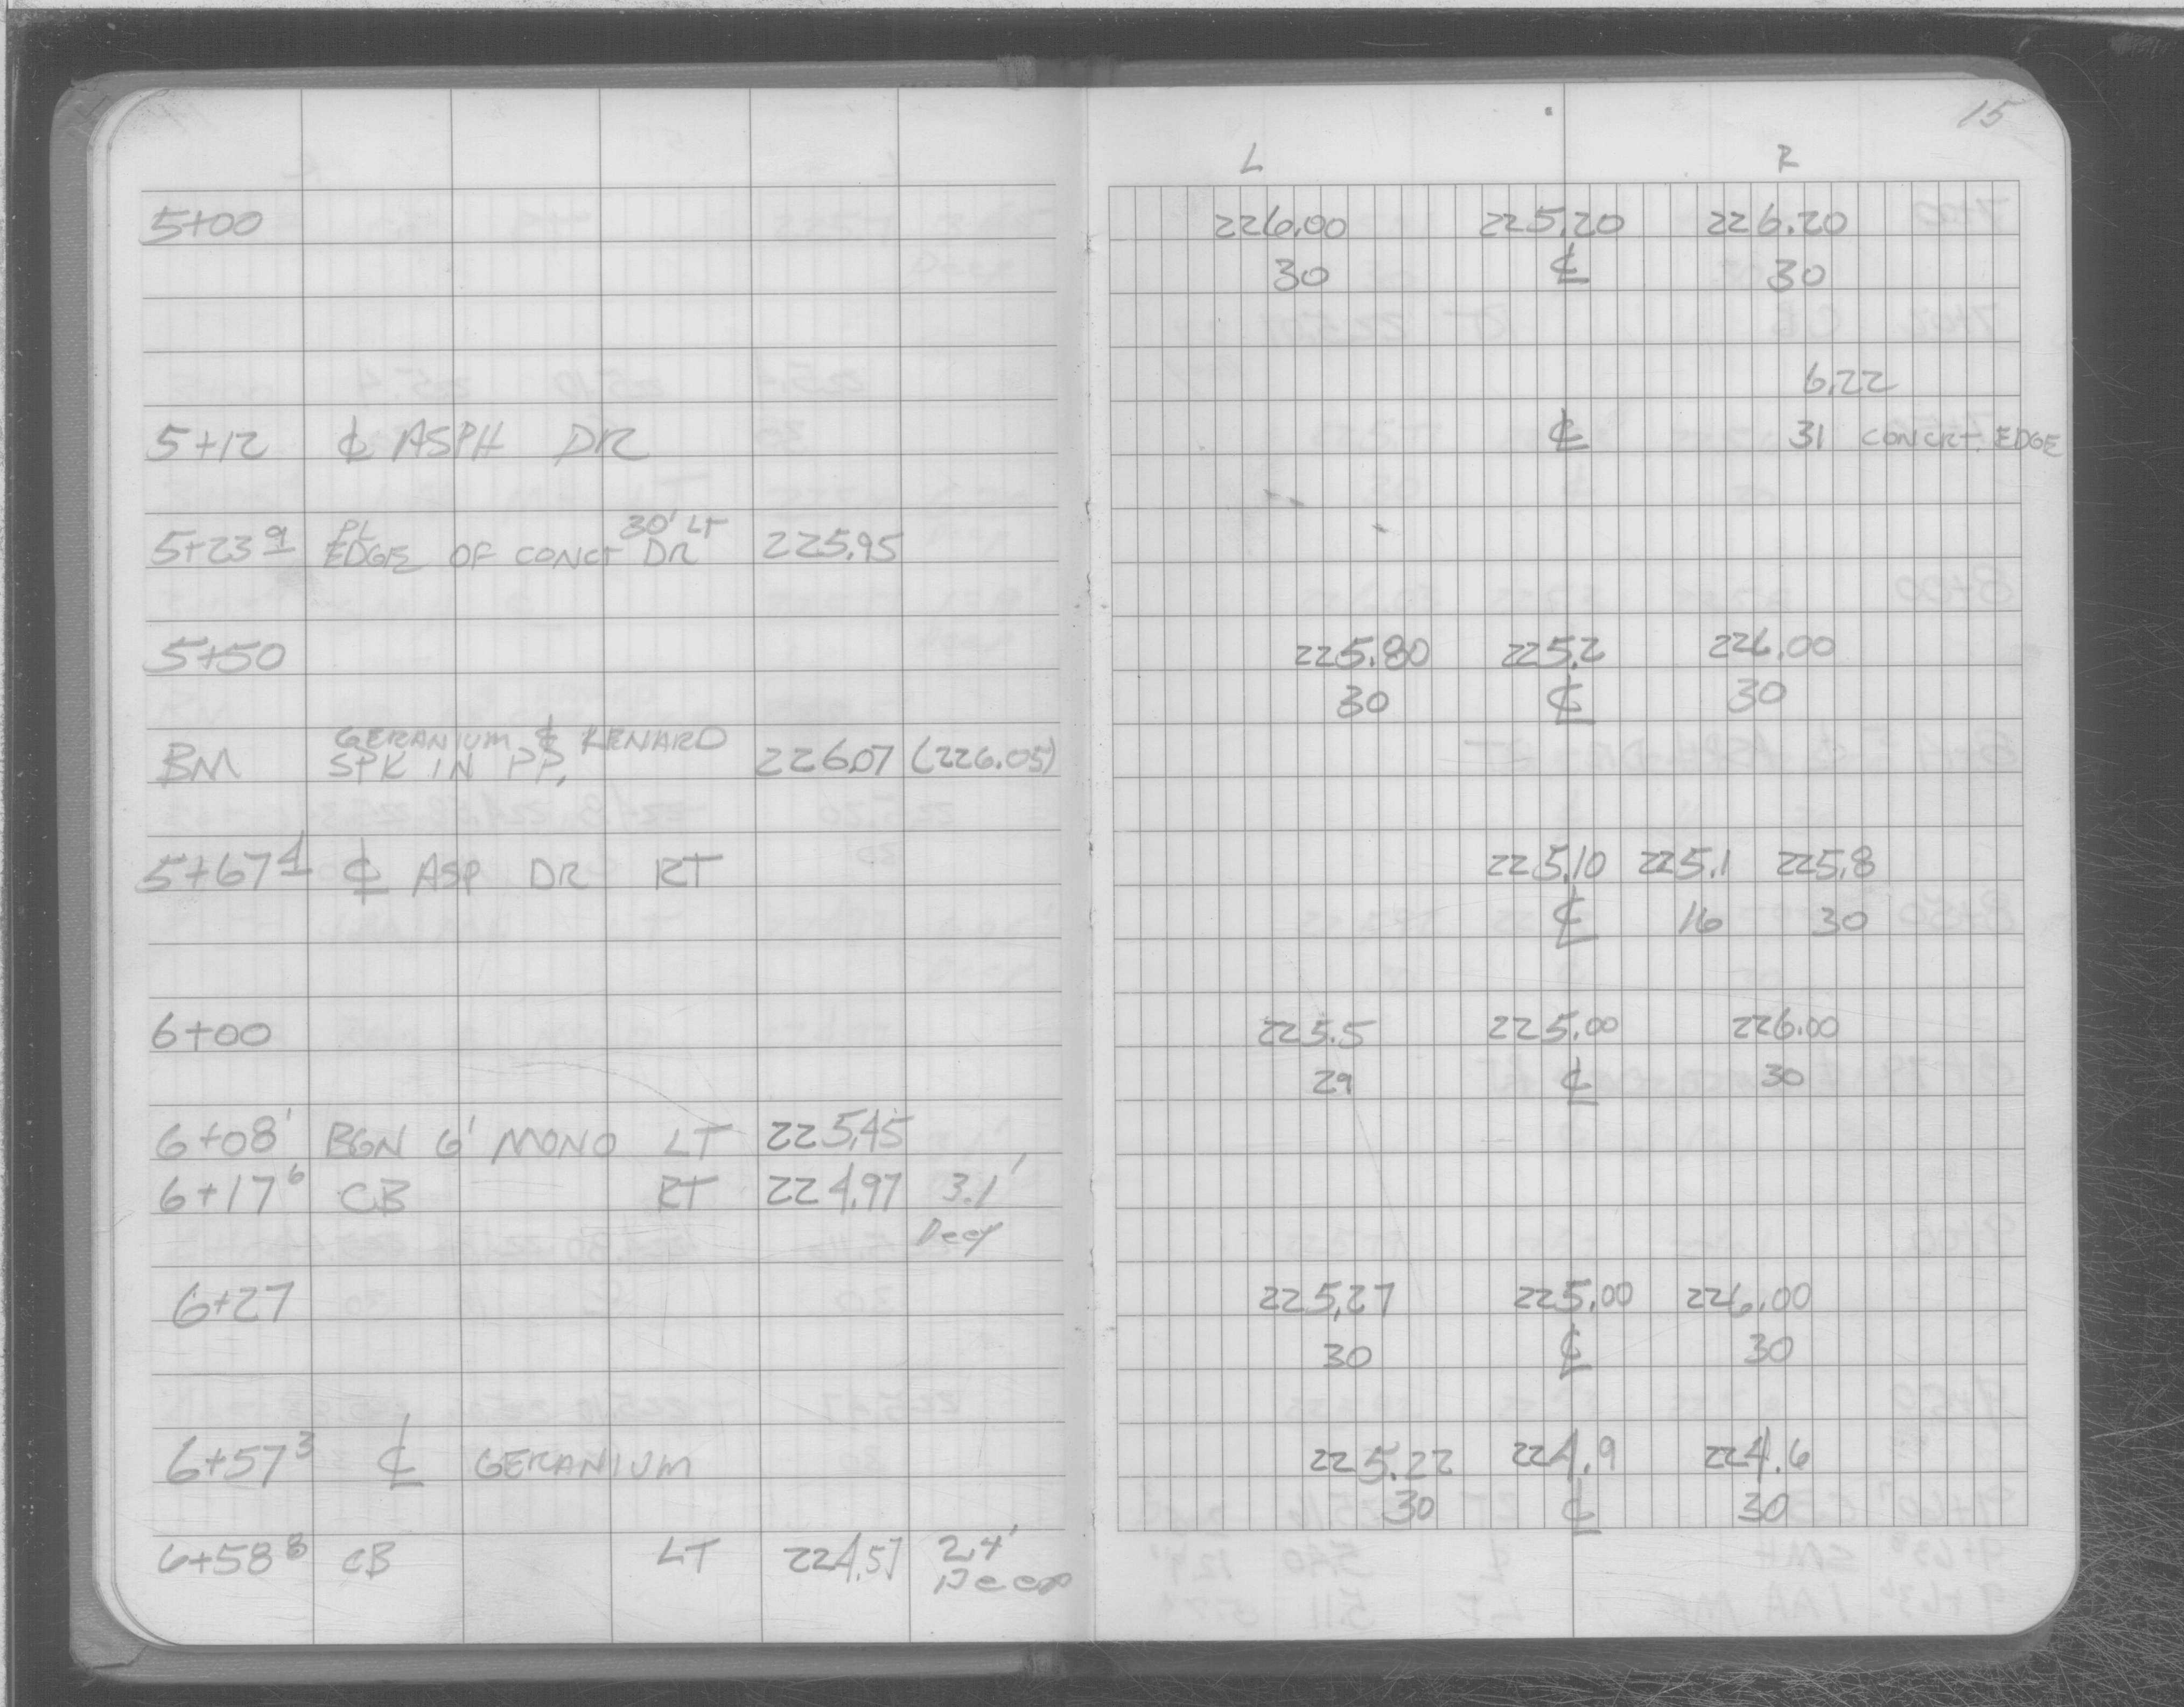 15
L R
5+00 226.00 225.20 226.20
30 ℄ 30
6.22
5+12 ℄ ASPH DR ℄ 31 CONCRT. EDGE
PL 30' LT
5+23 9 EDGE OF CONCT DR 225.95
5+50 225.80 225.2 226.00
30 ℄ 30
GERANIUM & RENARD
BM SPK IN PP. 226.07 (226.05)
5+67 4 ℄ ASP DR RT 225.10 225.1 225.8
℄ 16 30
6+00 225.5 225.00 226.00
29 ℄ 30
6+08' BGN 6' MONO LT 225.45
6+17 6 CB RT 224.97 3.1'
Deep
6+27 225.27 225.00 226.00
30 ℄ 30
6+57 3 ℄ GERANIUM 225.22 224.9 224.6
30 ℄ 30
6+58 8 CB LT 224.57 2.4'
Deep